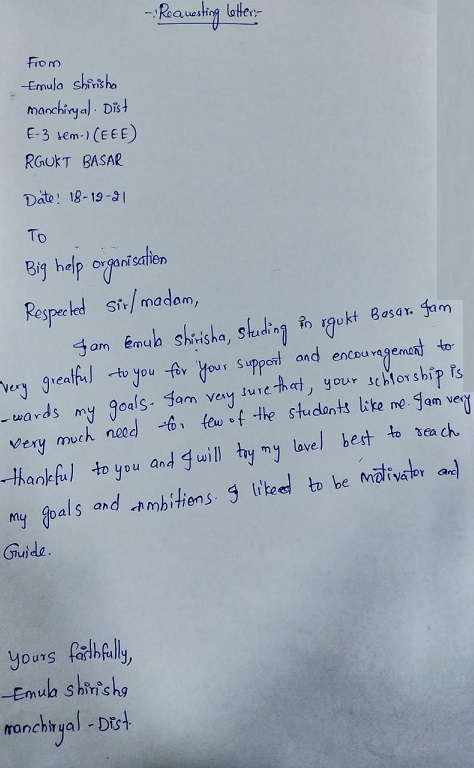 -:Requesting letter:-
From
Emula Shirisha
manchiryal. Dist
E-3 sem-1 (EEE)
RGUKT BASAR
Date: 18-19-21
To
Big help organisation
Respected Sir/madam,
Iam Emula Shirisha, studing in rgukt Basar. Iam
very greatful to you for your support and encouragement to
-wards my goals. Iam very sure that, your schlorship is
very much need for few of the students like me. Iam very
thankful to you and I will try my level best to reach
my goals and ambitions. I likeed to be motivator and
Guide.
yours faithfully,
Emula shirisha
manchiryal - Dist